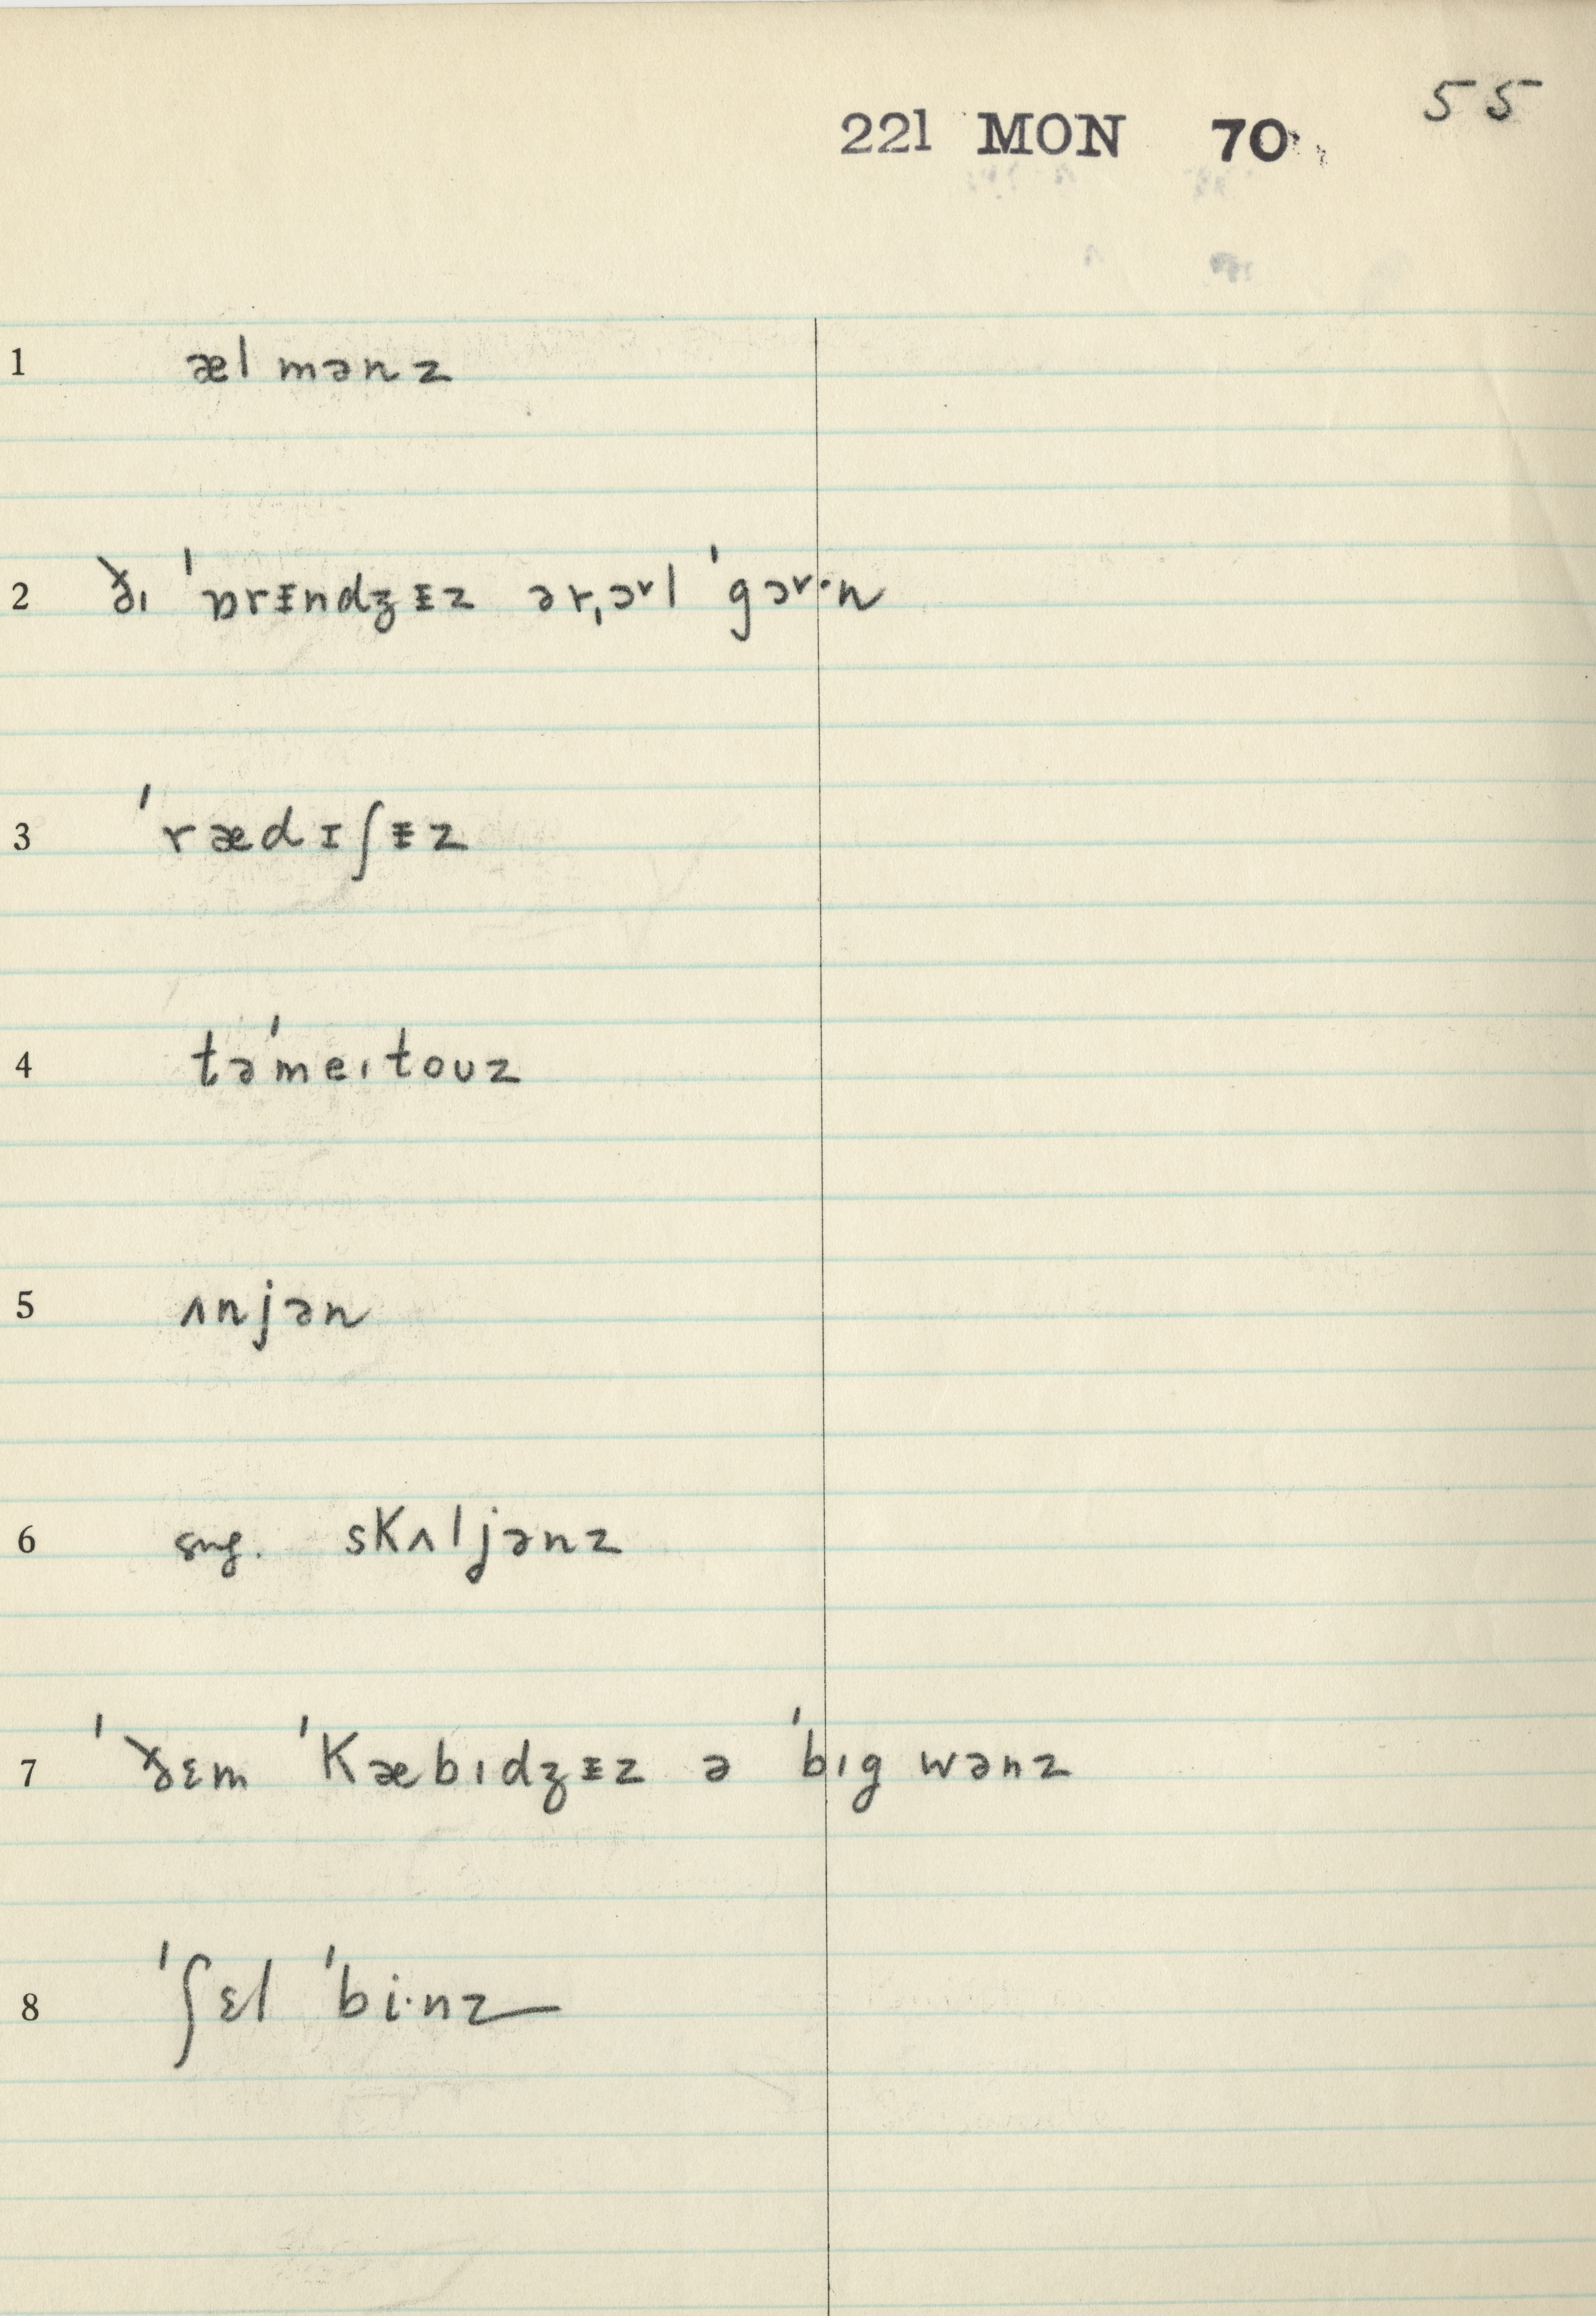 55
221 MON 70
1 ælmənz
2 ðɪ ˈɒrᵻndʒᵻz ərˌɔɚl ˈgɔɚ·n
3 ˈrædɪʃᵻz
4 təˈmeɪtoʊz
5 ʌnjən
6 sug. skʌljənz
7 ˈðɛm ˈkæbɪdʒᵻz ə ˈbɪg wənz
8 ˈʃɛl ˈbi·nz